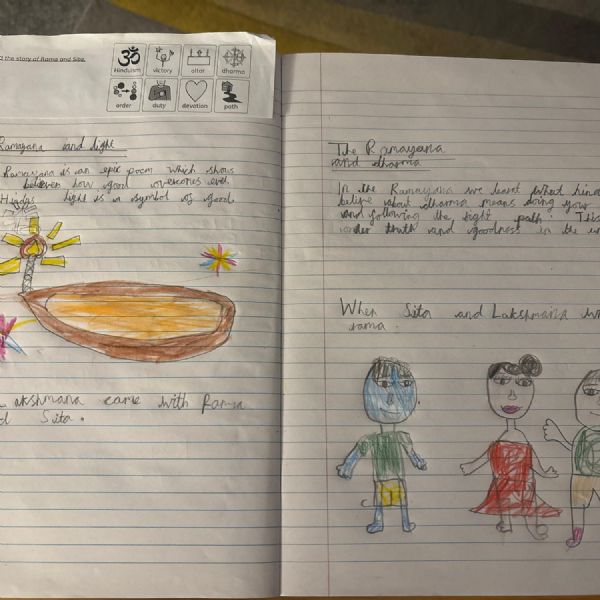 the story of Rama and Sita.
Hinduism victory altar dharma
order duty devotion path
Ramayana and light
Ramayana is an epic poem which shows
how good overcomes evil
light is a symbol of good.
Lakshmana came with Rama
Sita.
The Ramayana
and dharma
In the Ramayana we learnt what
believe about dharma means doing your
and following the right path. This
order truth and goodness in the
When Sita and Lakshmana
rama.